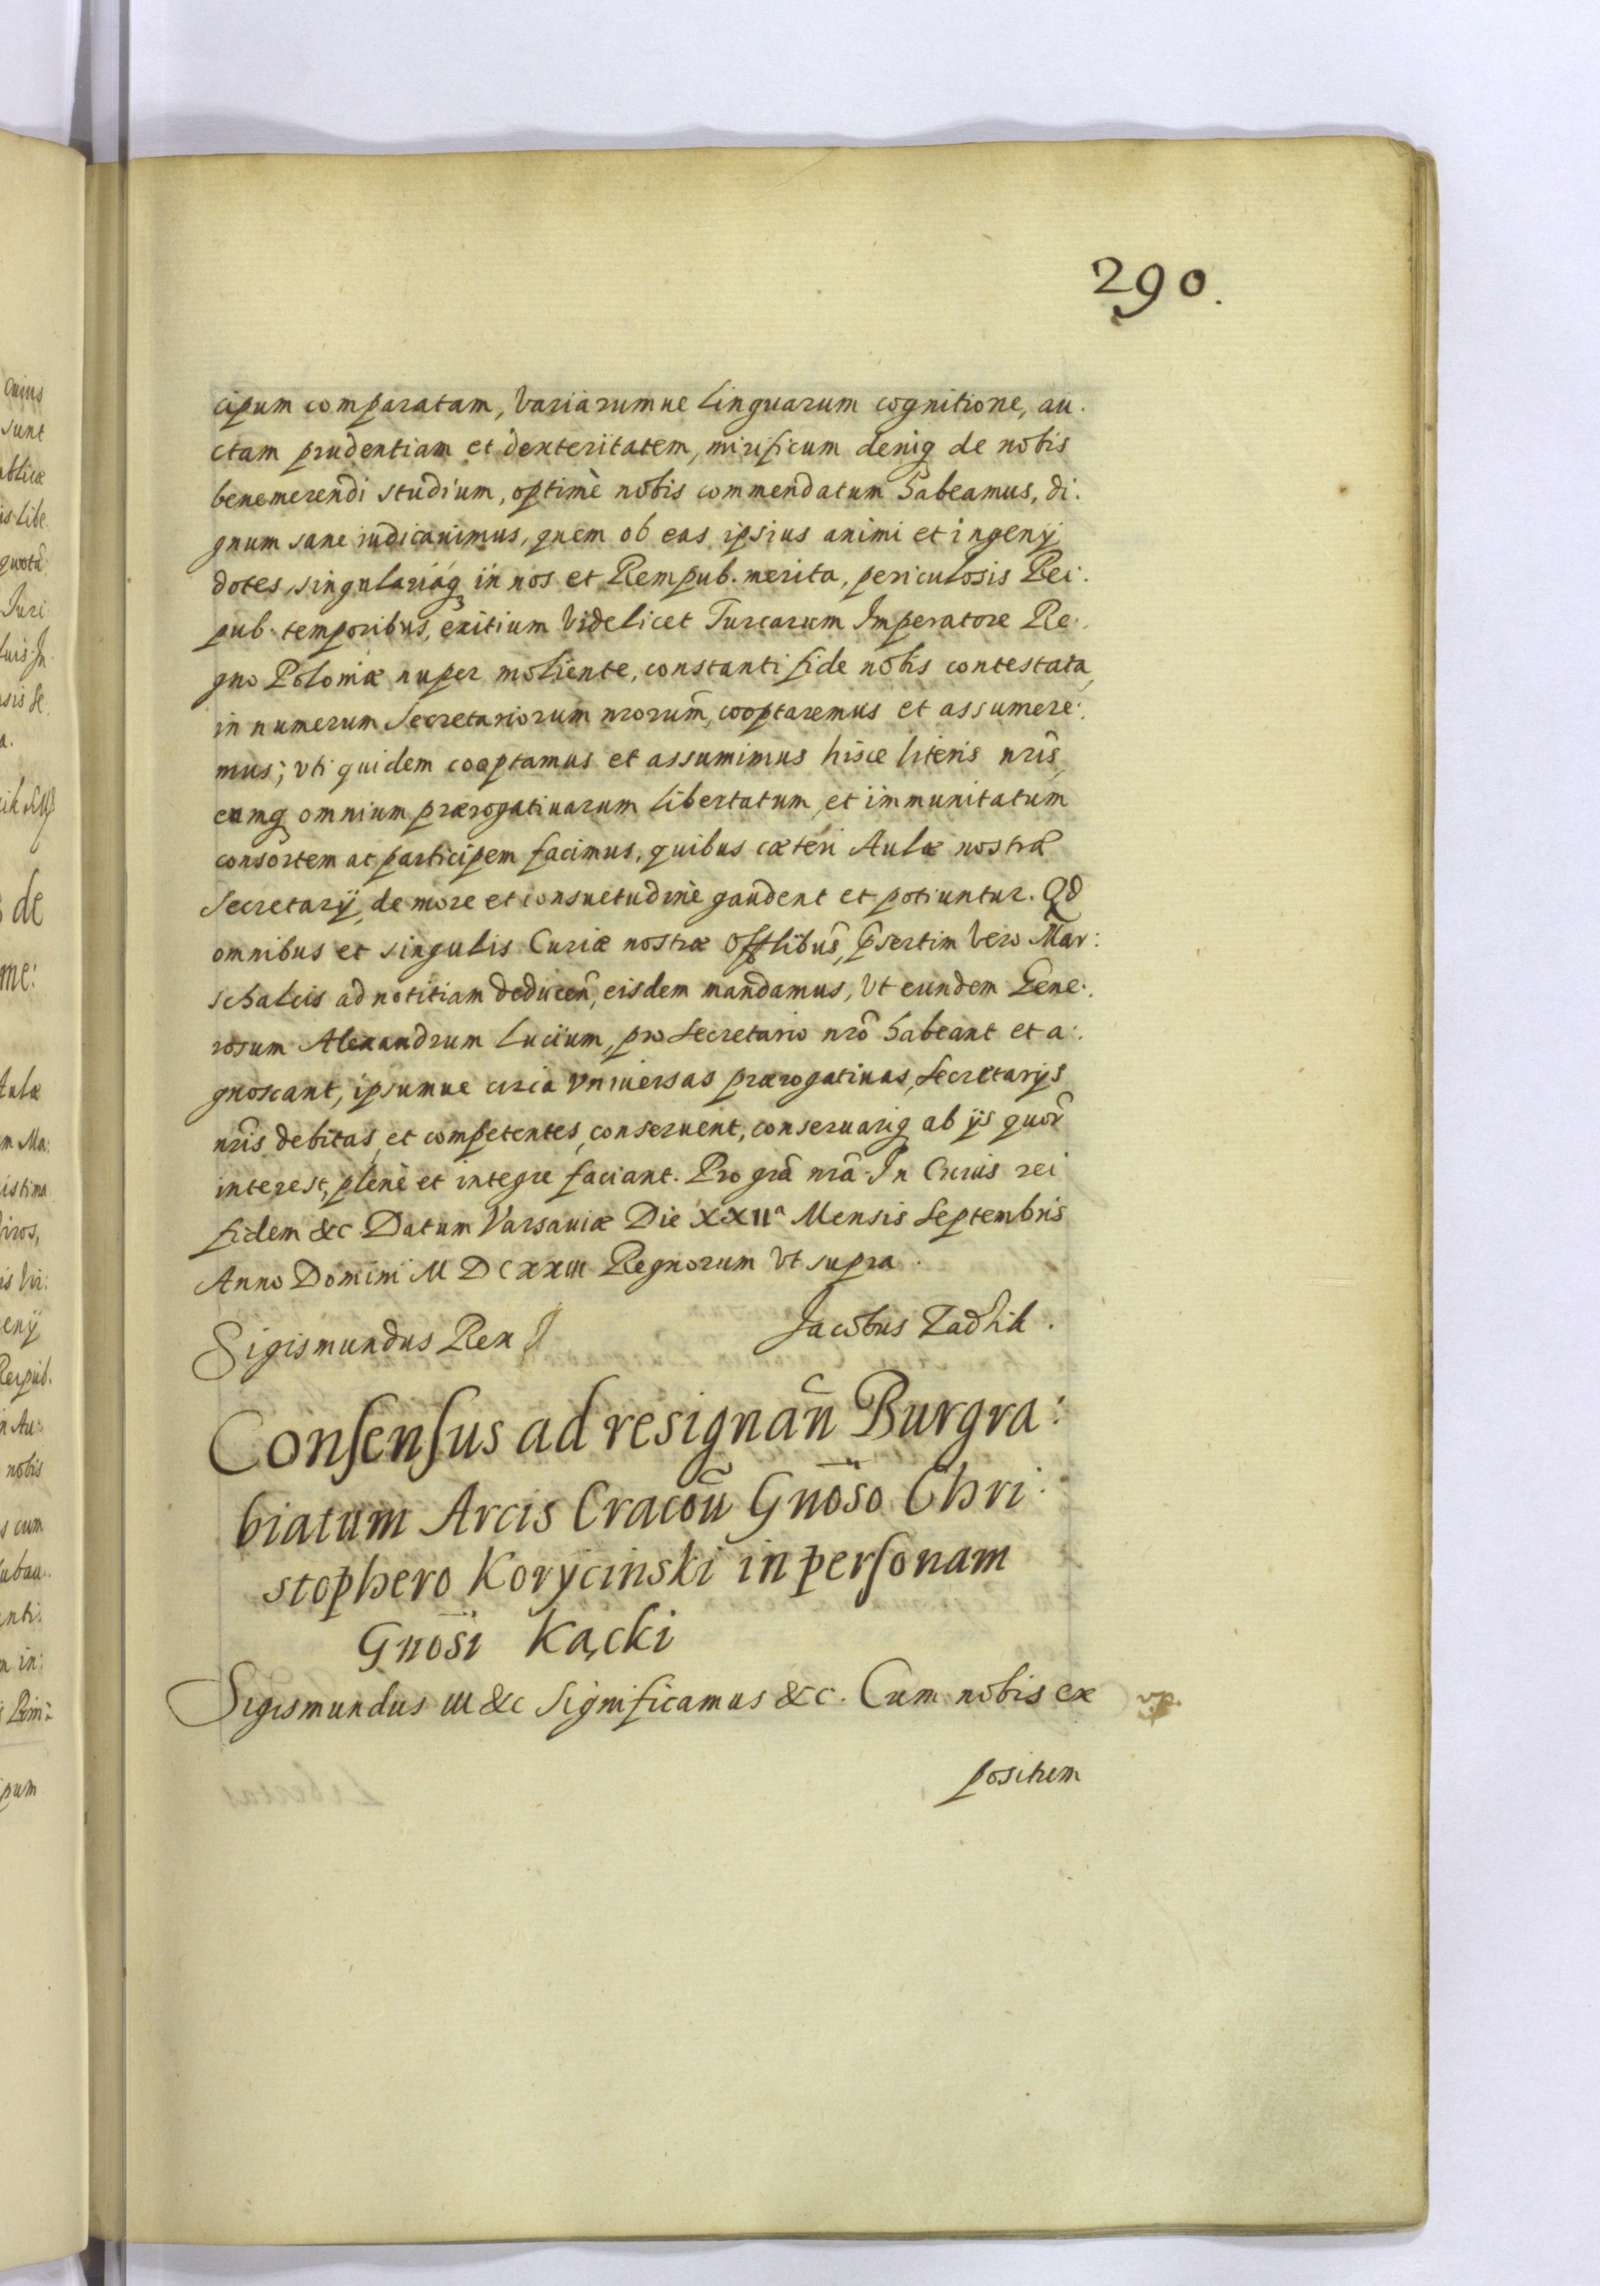 290.
cipum comparatam, variarumue linguarum cognitione, au.
ctam prudentiam et dexteritatem, mirificum deniq de nobis
benemerendi studium, optimè nobis commendatum habeamus, di.
gnum sane iudicauimus, quem ob eas ipsius animi et ingenij
dotes, singulariáq in nos et Rempub. merita, periculosis Rei.
pub. temporibus, exitium videlicet Turcarum Imperatore Re.
gno Poloniæ nuper moliente, constanti fide nobis contestata,
in numerum Secretariorum nrorum, cooptaremus et assumere:
mus; vti quidem cooptamus et assumimus hisce literis nris,
eumq omnium prærogatiuarum libertatum et immunitatum
consortem ac participem facimus, quibus cæteri Aulæ nostræ
Secretarij, de more et consuetudine gaudent et potiuntur. Qd
omnibus et singulis Curiæ nostræ Offlibus, psertim vero Mar:
schalcis ad notitiam deducen, eisdem mandamus, vt eundem Gene:
rosum Alexandrum Lucium, pro Secretario nro habeant et a:
gnoscant, ipsumue circa vniuersas prærogatiuas, Secretarijs
nris debitas, et competentes, conseruent, conseruariq ab ijs quor
interest, plenè et integre faciant. Pro gra nra. In Cuius rei
fidem &c Datum Varsauiæ Die XXIIa Mensis Septembris
Anno Domini M D C XXIII Regnorum vt supra.
Sigismundus Rex Jacobus Zadzik.
Consensus ad resignan Burgra:
biatum Arcis Cracou Gnoso Chri:
stophero Korycinski in personam
Gnosi Kącki
Sigismundus III &c Significamus &c. Cum nobis ex
positum